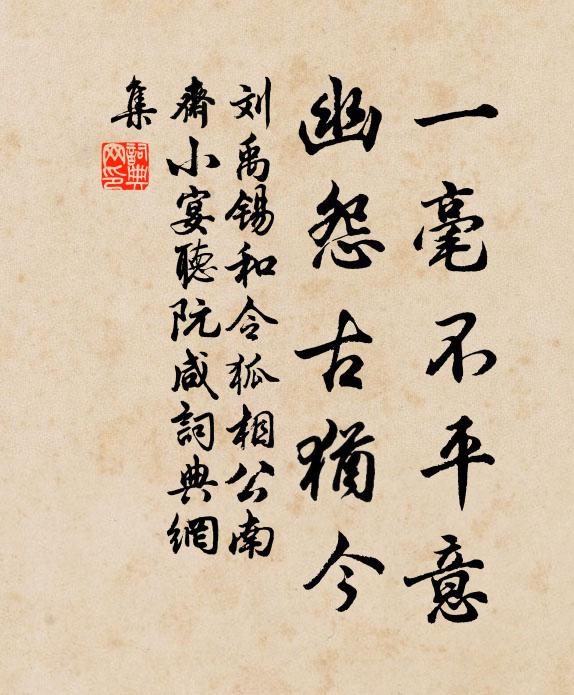 一毫不平意
幽怨古猶今
刘禹锡和令狐相公南
齋小宴聽阮咸詞典網
集
詞典
网印